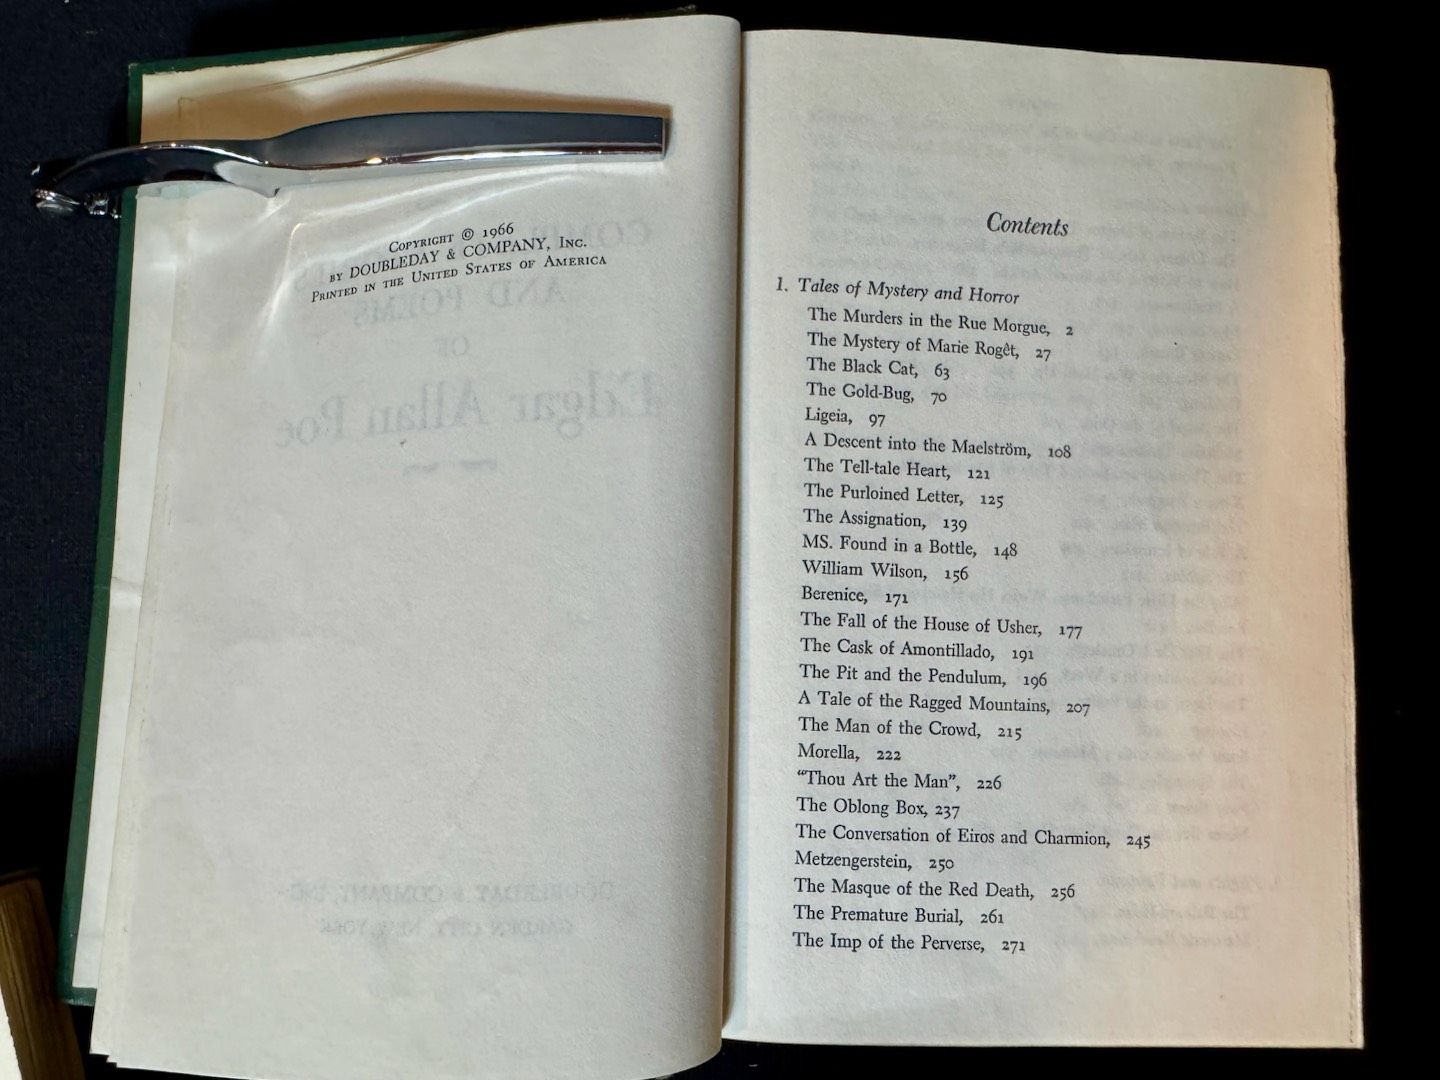 Copyright © 1966
by DOUBLEDAY & COMPANY, Inc.
Printed in the United States of America
Contents
1. Tales of Mystery and Horror
The Murders in the Rue Morgue, 2
The Mystery of Marie Rogêt, 27
The Black Cat, 63
The Gold-Bug, 70
Ligeia, 97
A Descent into the Maelström, 108
The Tell-tale Heart, 121
The Purloined Letter, 125
The Assignation, 139
MS. Found in a Bottle, 148
William Wilson, 156
Berenice, 171
The Fall of the House of Usher, 177
The Cask of Amontillado, 191
The Pit and the Pendulum, 196
A Tale of the Ragged Mountains, 207
The Man of the Crowd, 215
Morella, 222
“Thou Art the Man”, 226
The Oblong Box, 237
The Conversation of Eiros and Charmion, 245
Metzengerstein, 250
The Masque of the Red Death, 256
The Premature Burial, 261
The Imp of the Perverse, 271